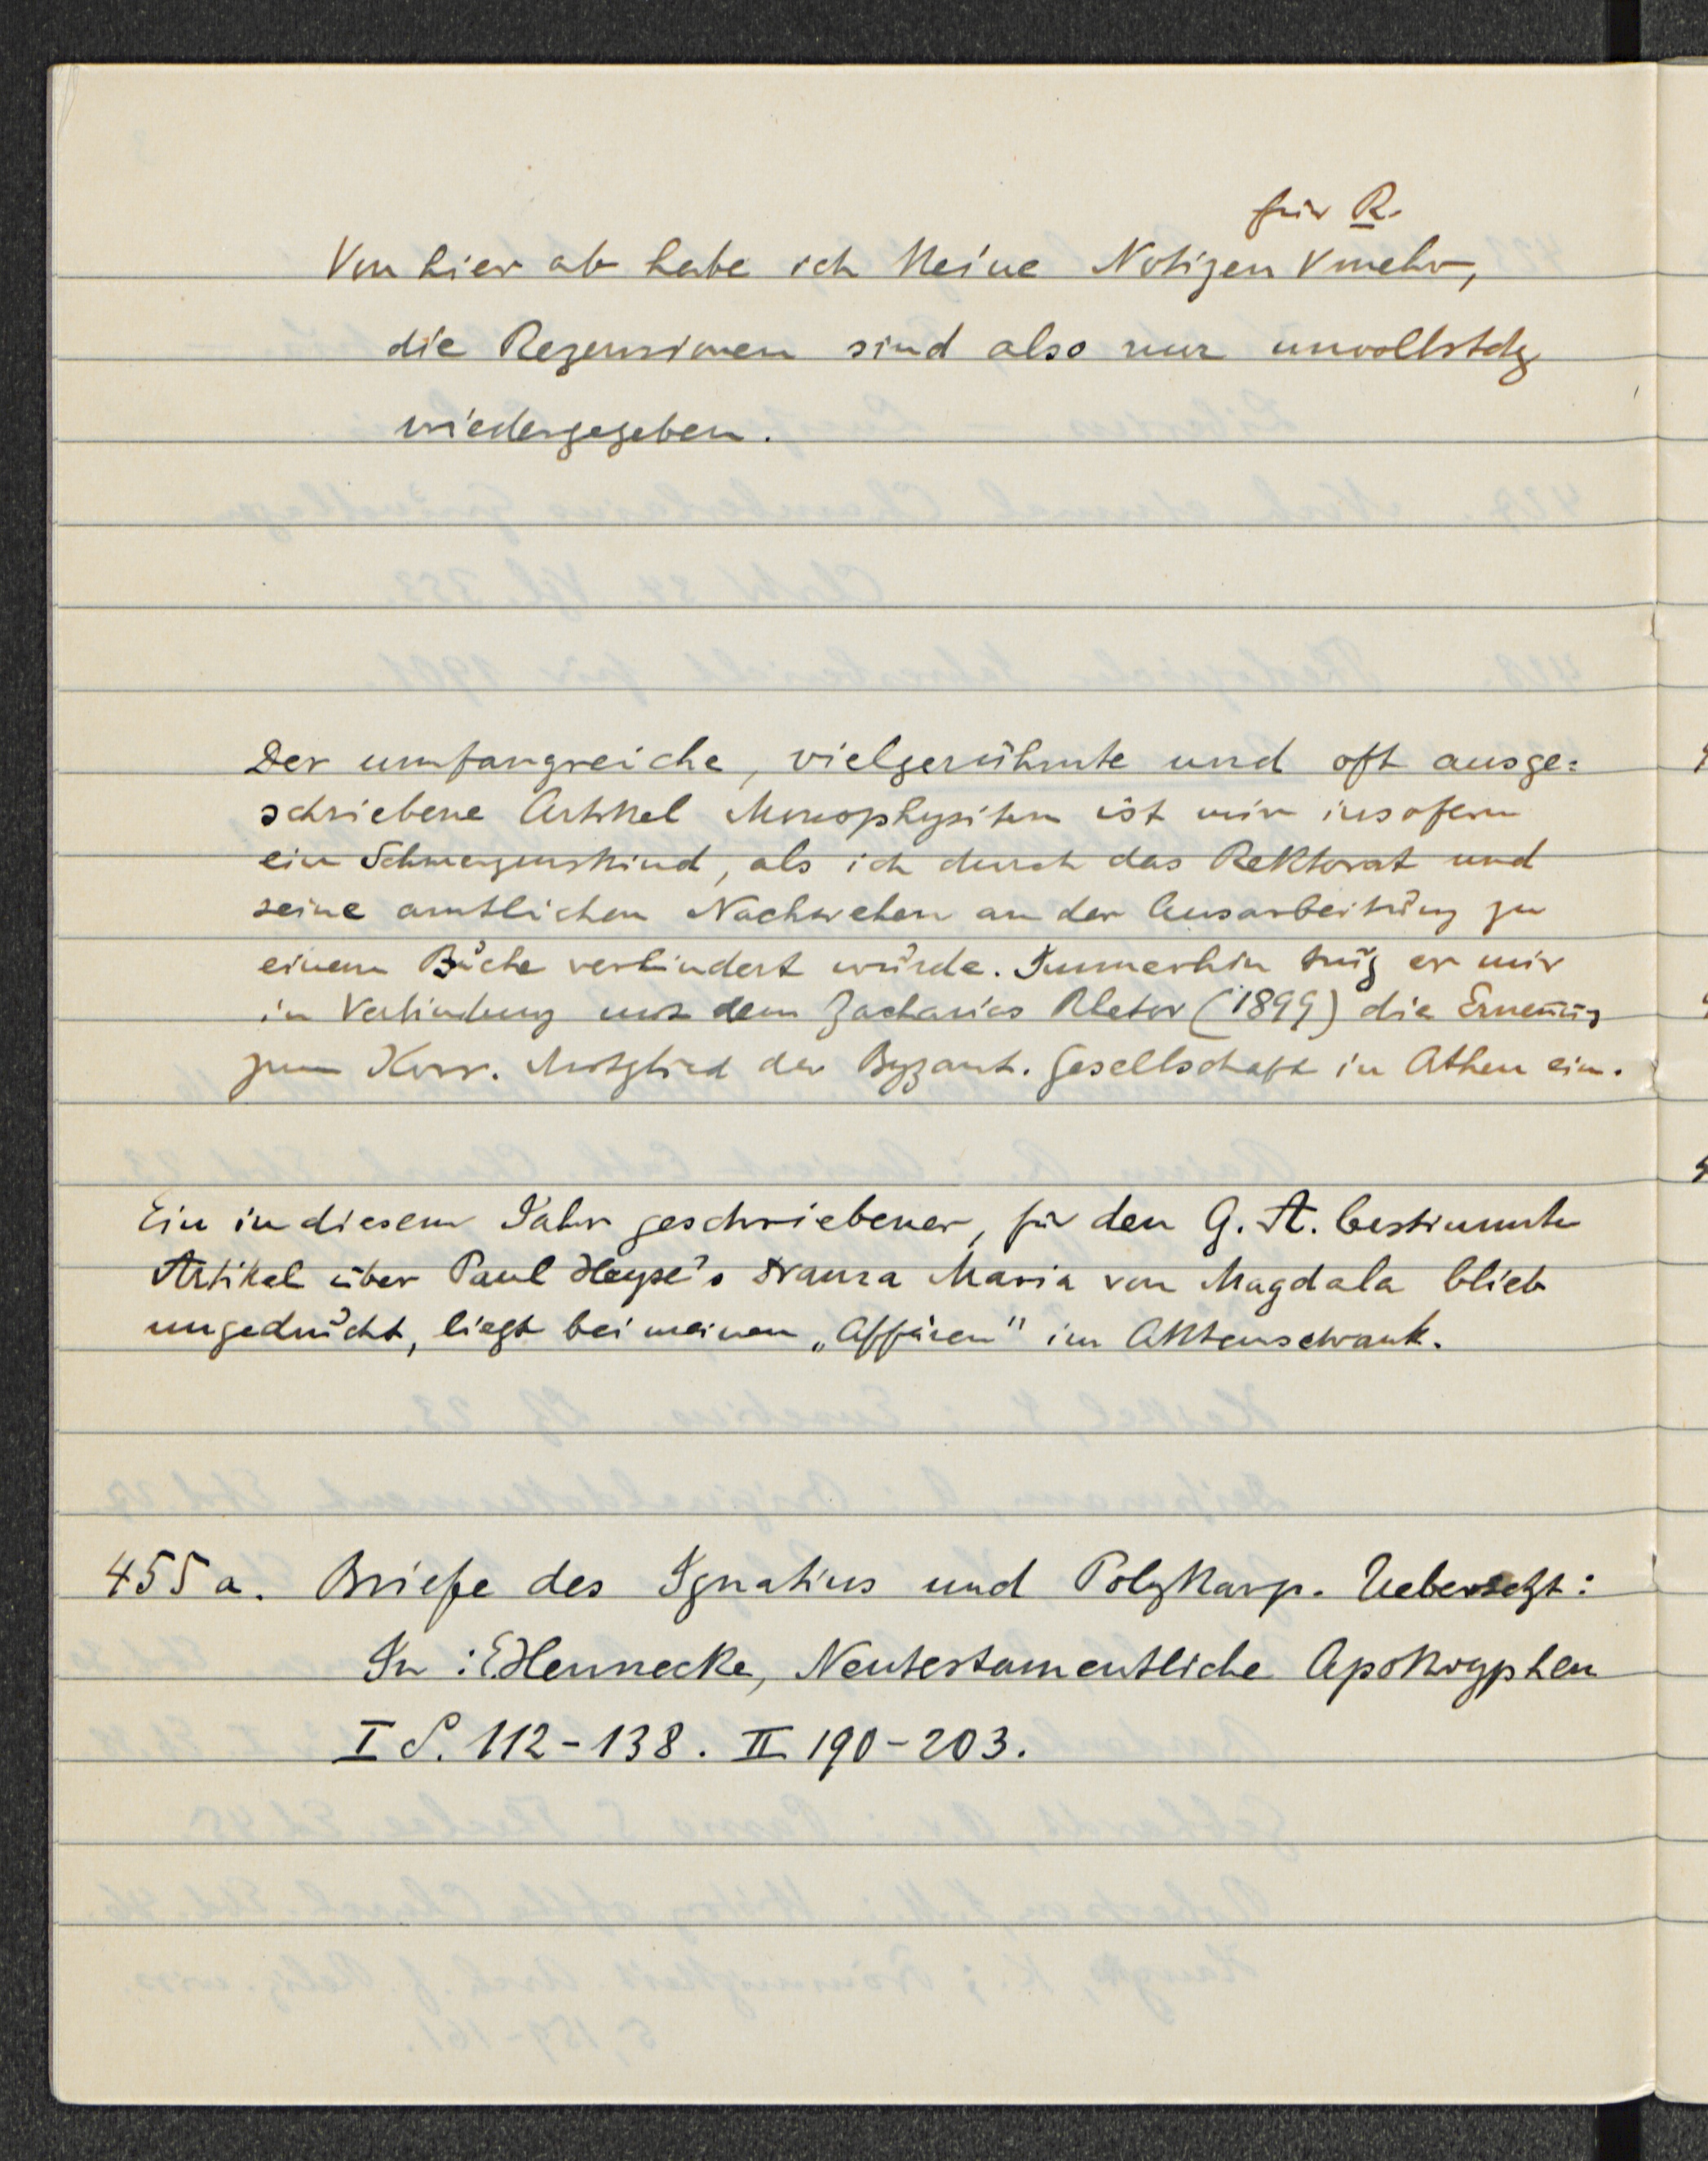 für R.
Von hier ab habe ich keine Notizen V mehr,
die Rezensionen sind also nur unvollstdg
wiedergegeben.
Der umfangreiche, vielgerühmte und oft ausge=
schriebene Artikel Monophysiten ist mir insofern
ein Schmerzenskind, als ich durch das Rektorat und
seine amtlichen Nachwehen an der Ausarbeitung zu
einem Buche verhindert wurde. Immerhin trug er mir
in Verbindung mit dem Zacharias Rhetor (1899) die Ernennung
zum Korr. Mitglied der Byzant. Gesellschaft in Athen ein.
Ein in diesem Jahr geschriebener, für den G. A. bestimmte
Artikel über Paul Heyse's Drama Maria von Magdala blieb
ungedruckt, liegt bei meinen „Affären" im Aktenschrank.
455a. Briefe des Ignatius und Polykarp. Uebersetzt:
In: E. Hennecke, Neutestamentliche Apokryphen
I S. 112-138. II 190-203.